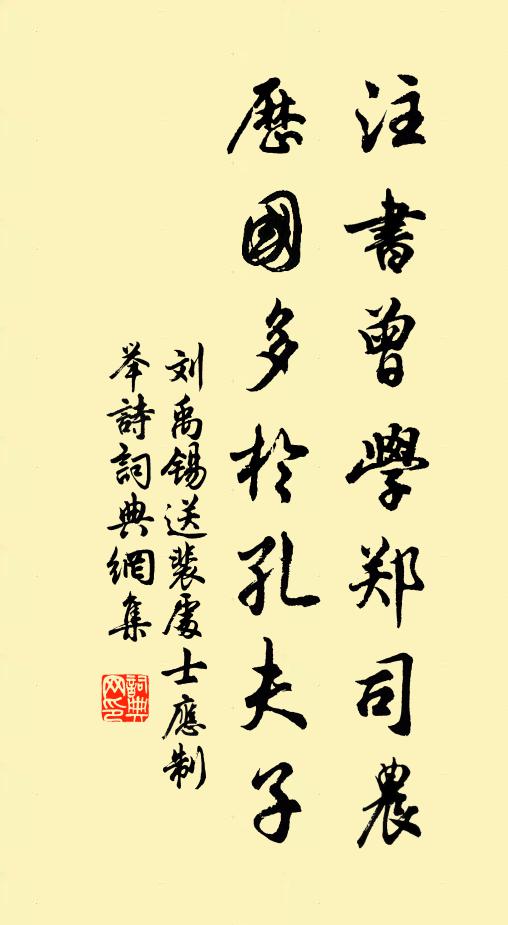 注書曾學郑司農
歷國多於孔夫子
刘禹锡送裴處士應制
举詩詞典網集
詞典
网印